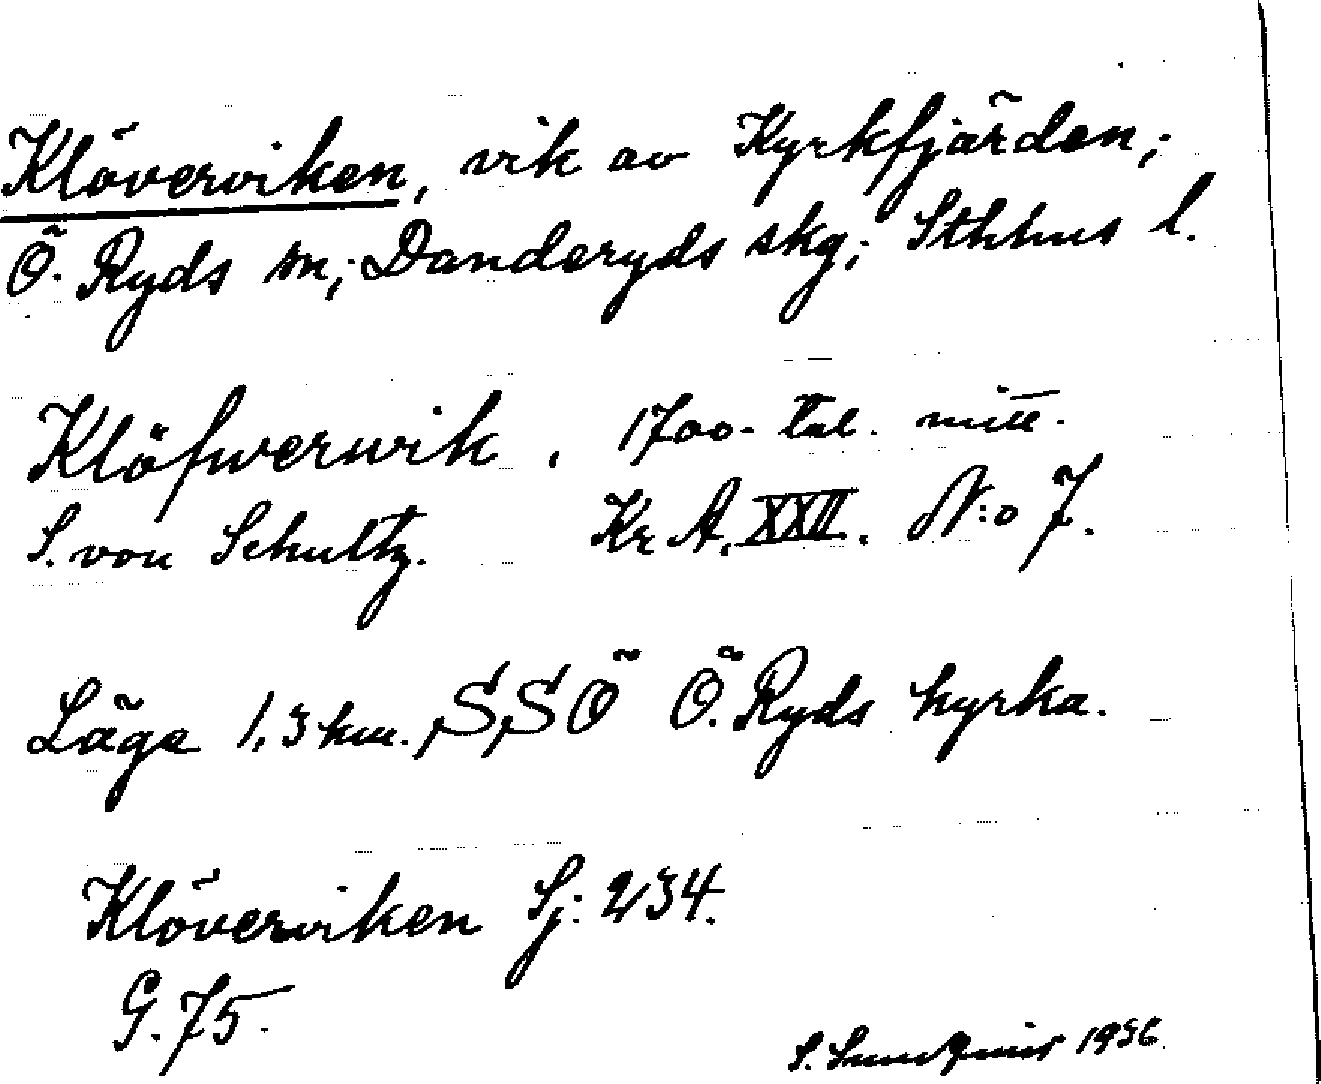 Klöverviken, vik av Kyrkfjärden;
Ö. Ryds sn; Danderyds skg; Sthlms l.
Klöfwerwik, 1700-tal. mitt.
S. von Schultz. Kr A. XXII. N:o 7.
Läge 1,3 km. SSÖ Ö. Ryds kyrka.
Klöverviken Sj: 234.
G. 75.
S. 1936